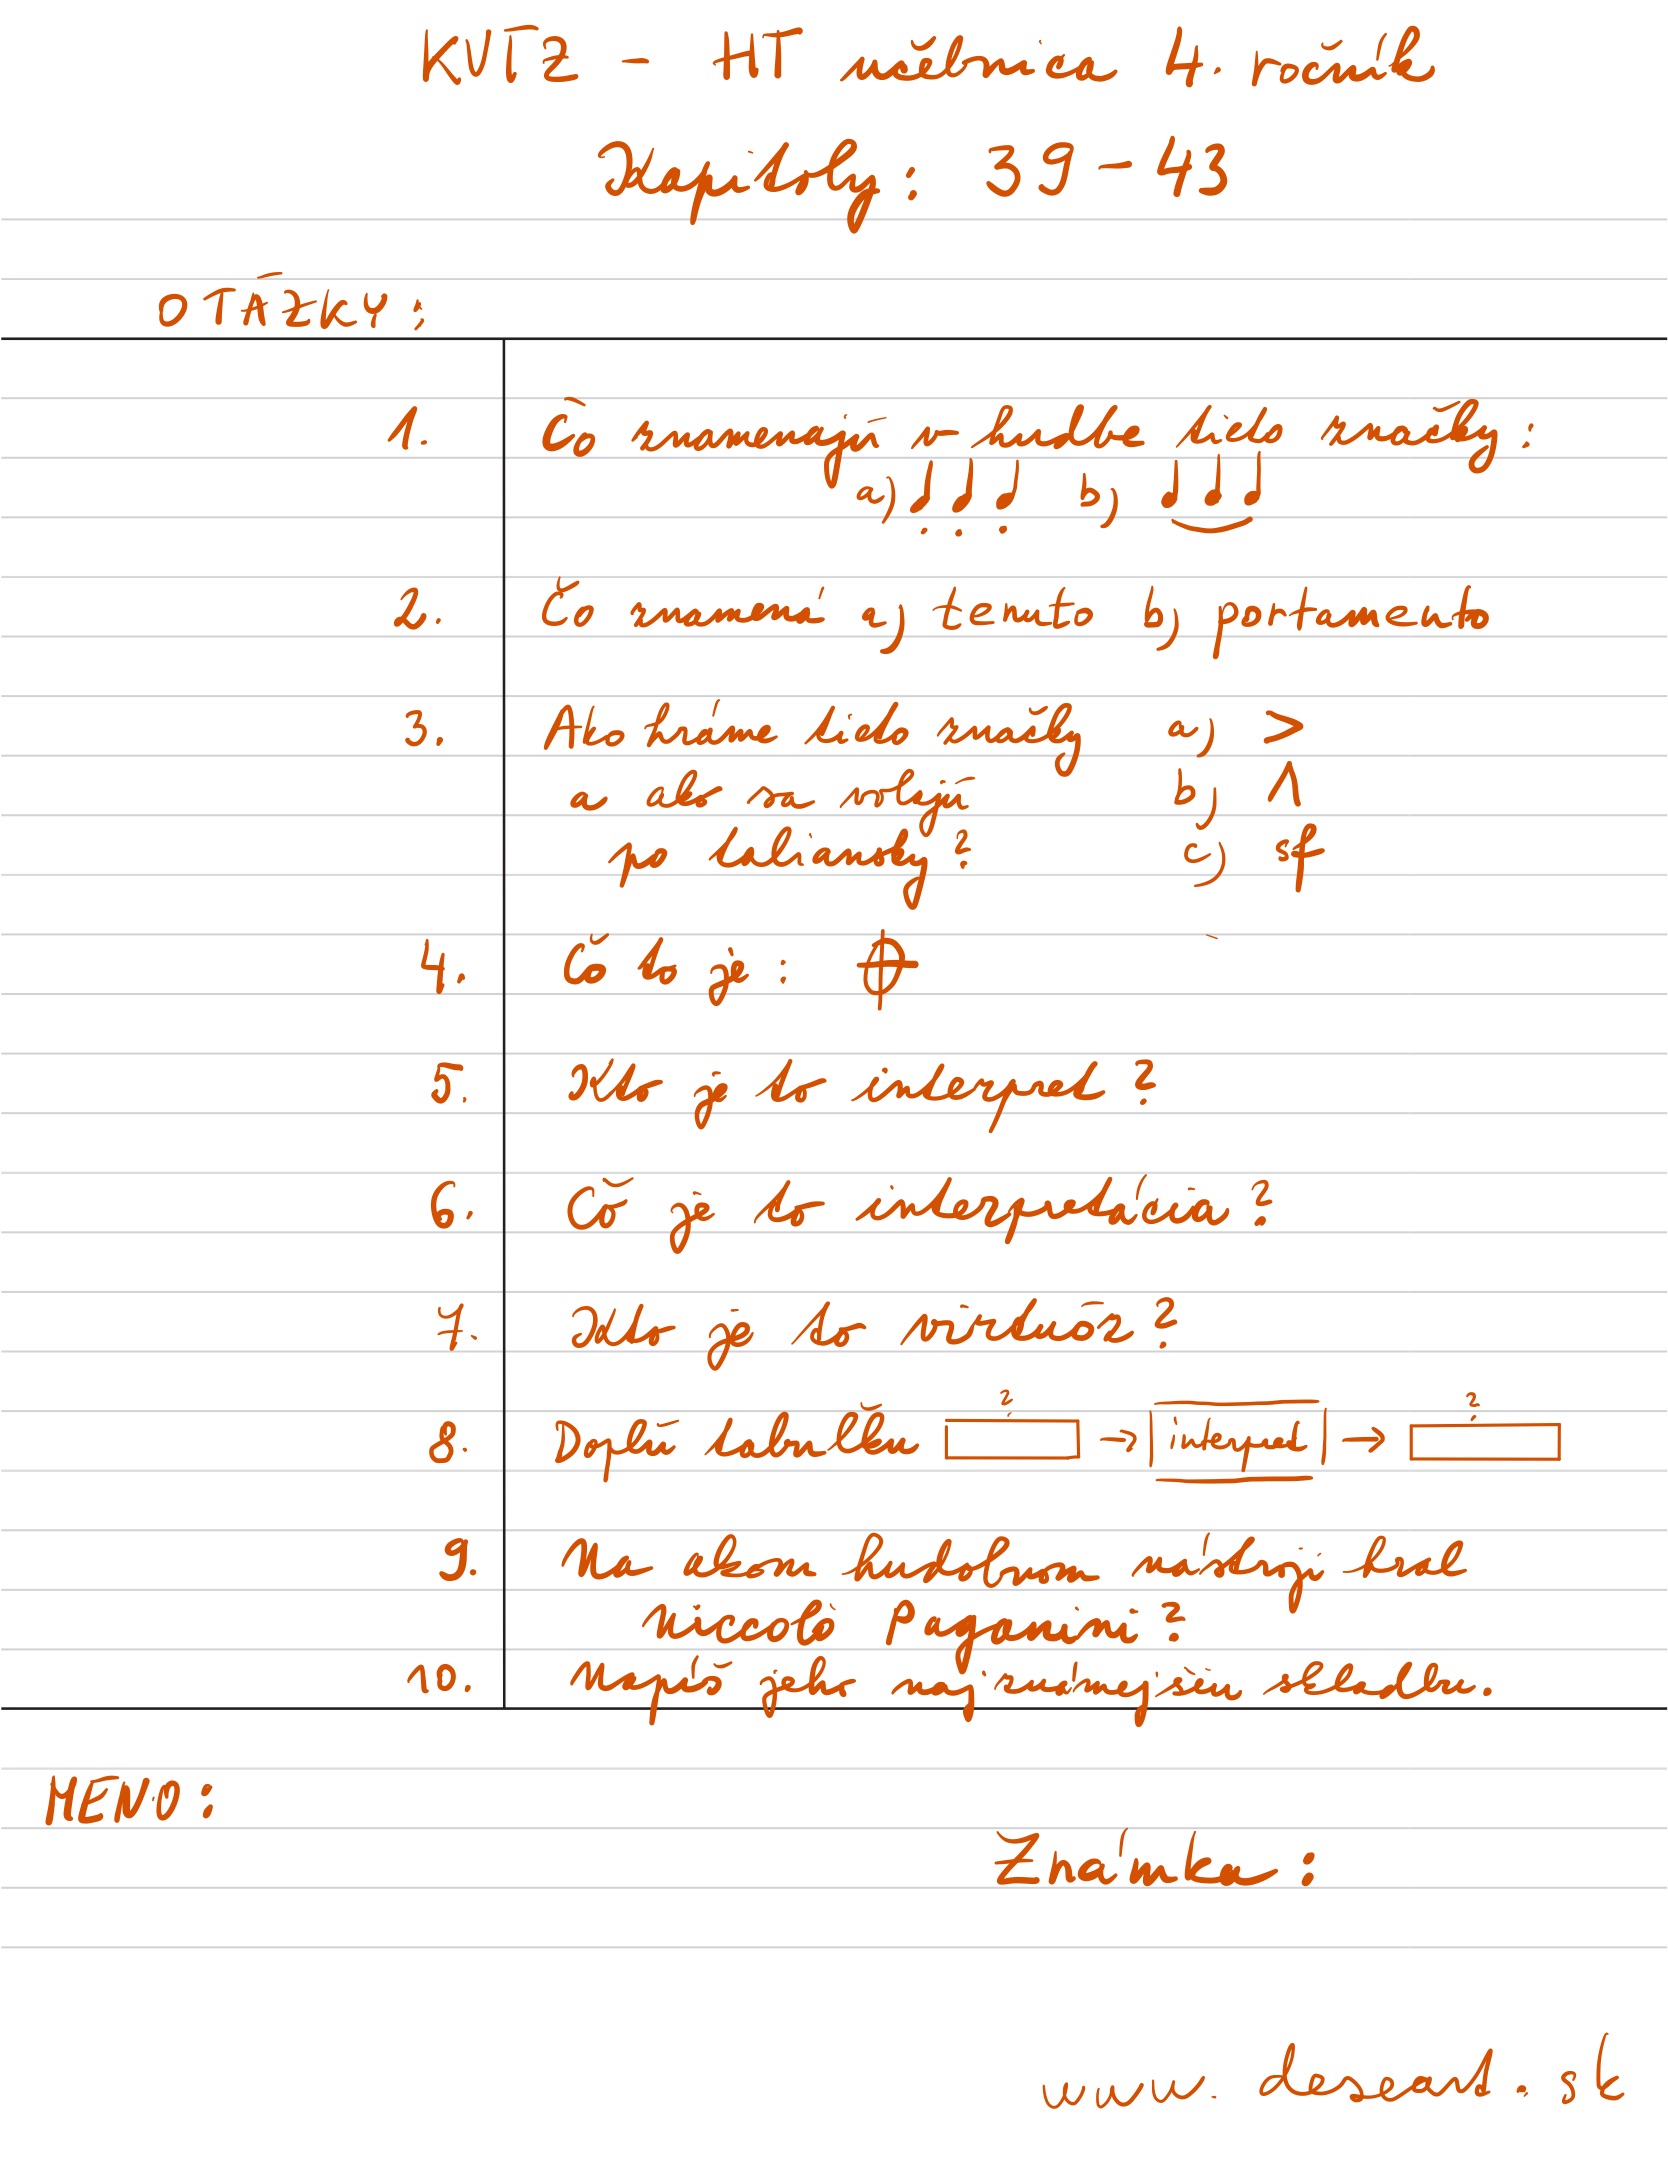 KVÍZ - HT učebnica 4. ročník
Kapitoly: 39-43
OTÁZKY:
1. Čo znamenajú v hudbe tieto značky:
a) ♩ ♩ ♩ b) ♩ ♩ ♩
2. Čo znamená a) tenuto b) portamento
3. Ako hráme tieto značky a) >
a ako sa volajú b) ∧
po taliansky? c) sf
4. Čo to je:
5. Kto je to interpret?
6. Čo je to interpretácia?
7. Kto je to virtuóz?
8. Doplň tabuľku ? → interpret → ?
9. Na akom hudobnom nástroji hral
Niccoló Paganini?
10. Napíš jeho najznámejšiu skladbu.
MENO:
Známka:
www.deseart.sk